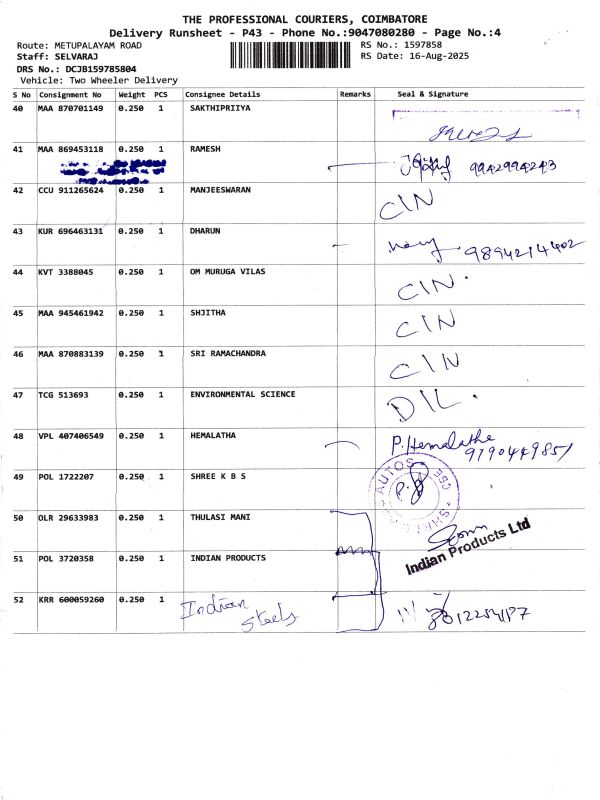 THE PROFESSIONAL COURIERS, COIMBATORE
Delivery Runsheet - P43 - Phone No.:9047080280 - Page No.:4
Route: METUPALAYAM ROAD
RS No.: 1597858
Staff: SELVARAJ
RS Date: 16-Aug-2025
DRS No.: DCJB159785804
Vehicle: Two Wheeler Delivery
S No Consignment No Weight PCS Consignee Details Remarks Seal & Signature
40 MAA 870701149 0.250 1 SAKTHIPRIIYA
41 MAA 869453118 0.250 1 RAMESH
9942994243
42 CCU 911265624 0.250 1 MANJEESWARAN
CIN
43 KUR 696463131 0.250 1 DHARUN
9894214402
44 KVT 3388045 0.250 1 OM MURUGA VILAS
CIN.
45 MAA 945461942 0.250 1 SHJITHA
CIN
46 MAA 870883139 0.250 1 SRI RAMACHANDRA
CIN
47 TCG 513693 0.250 1 ENVIRONMENTAL SCIENCE
DIL.
48 VPL 407406549 0.250 1 HEMALATHA
P.Hemalathe
9790449851
49 POL 1722207 0.250 1 SHREE K B S
AUTOS
CBE
50 OLR 29633983 0.250 1 THULASI MANI
51 POL 3720358 0.250 1 INDIAN PRODUCTS
Indian Products Ltd
52 KRR 600059260 0.250 1 Indian
Steels